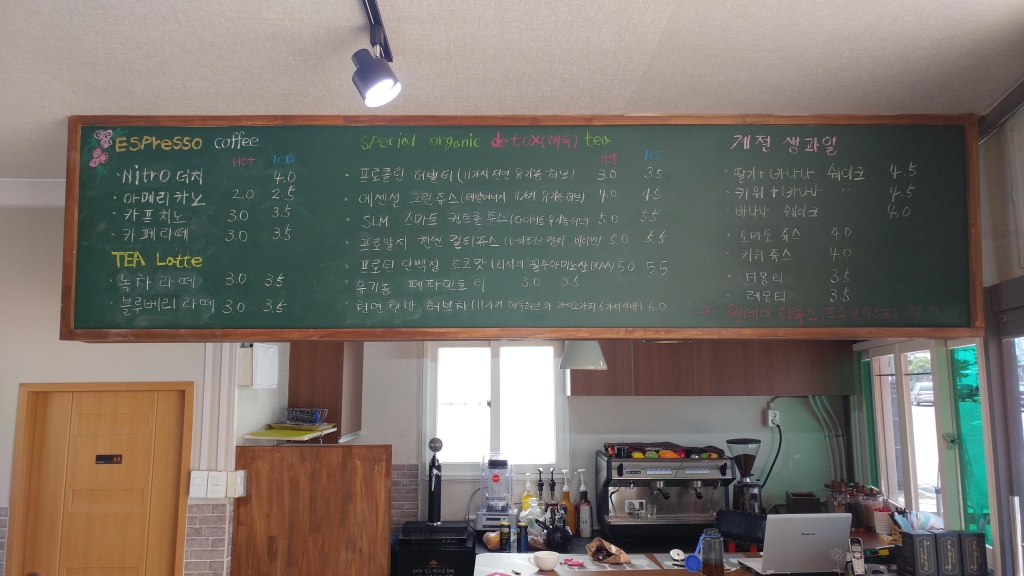 ESPresso coffee
HOT ICE
· Nitro 더치 4.0
· 아메리카노 2.0 2.5
· 카프치노 3.0 3.5
· 카페라떼 3.0 3.5
TEA Latte
· 녹차라떼 3.0 3.5
· 블루베리라떼 3.0 3.5
special organic detox(해독) tea
HOT ICE
· 프로클린 허벌티 (11가지 천연 유기농 허브) 3.0 3.5
· 에센셜 그린쥬스 (11가지 유기농 허브) 4.0 4.5
· SLM 스마트 컨트롤 쥬스 5.0 5.5
· 프로알지 천연 칼티쥬스 5.0 5.5
· 프로틴 단백질 초코맛 (필수아미노산 BCAA) 5.0 5.5
· 유기농 페파민트 티 3.0 3.5
· 천연한방 허브차 6.0
계절 생과일
· 딸기+바나나 쉐이크 4.5
· 키위+바나나 〃 4.5
· 바나나 쉐이크 4.0
· 토마토 쥬스 4.0
· 키위 쥬스 4.0
· 자몽티 3.5
· 레몬티 3.5